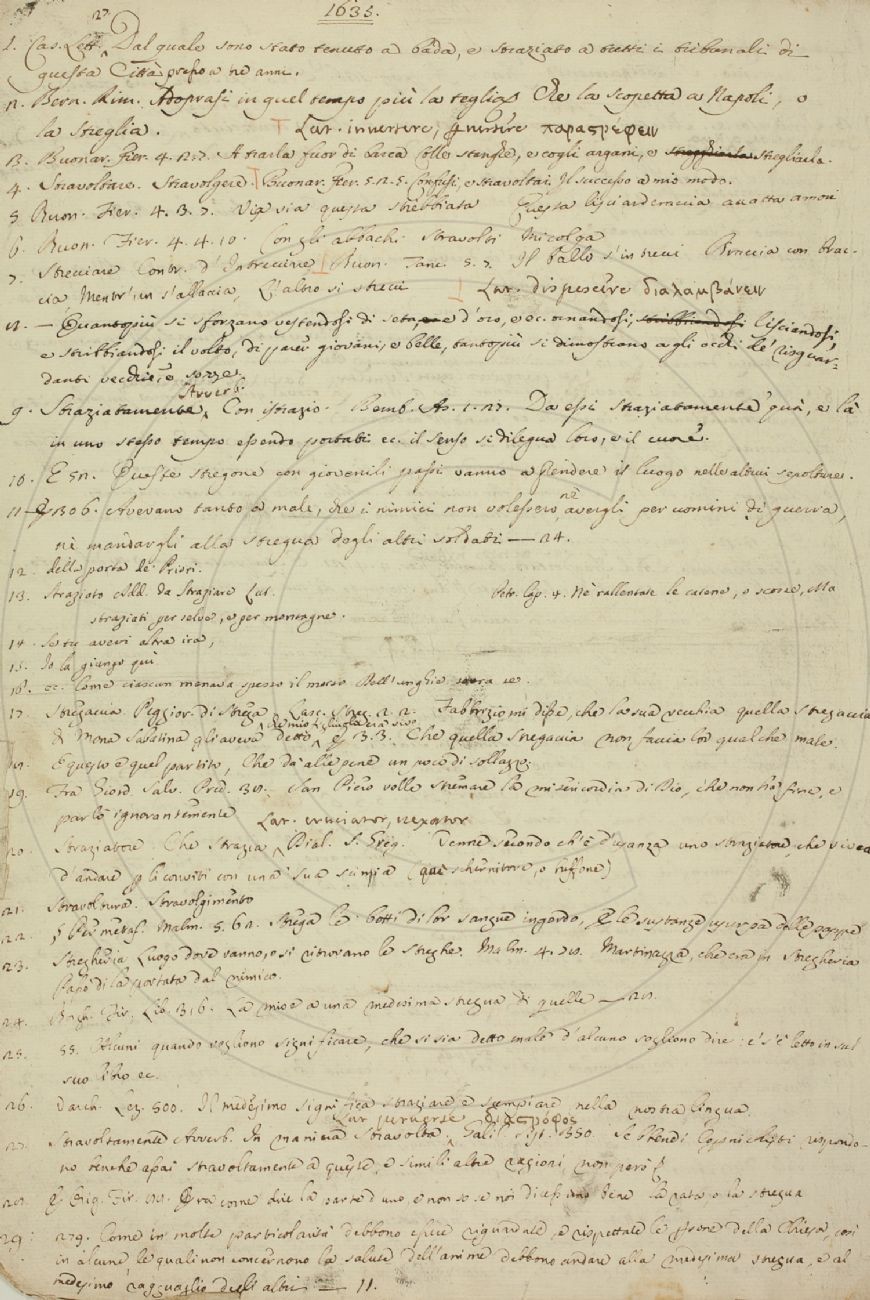 1635.
27.
1. Cas. Lett. Dal quale sono stato tenuto a bada, e straziato a tutti i tribunali di
questa Città presso a tre anni.
2. Bern. Rim. Adoprasi in quel tempo più la teglia Che la scopetta a Napoli, o
la streglia. Lat. invertere, παραστρέφειν
3. Buonar. Fier. 4. Atrarla fuor di barca Colle stanghe, e cogli argani, e stregliarla stregliarla.
4. Stravoltare. Stravolgere Buonar. Fier. 5. 2. 5. Confusi, e stravoltai Il successo a mio modo.
5 Buon. Fier. 4. 3. 7. Via via questa stribbiata
6. Buon. Fier. 4. 4. 10. Con gli abbachi stravolti
7. Strecciare Contr. d'Intrecciare Buon. Tanc. 5. 7. Il ballo s'intrecci Braccia con brac-
cia Mentr'un s'allaccia, L'altro si strecci Lat. διαλαμβάνειν
8. — Quanto più si sforzano vestendosi di seta, e d'oro, e ec. ornandosi, stribbiandosi lisciandosi,
e stribbiandosi il volto, di parer giovani, e belle, tanto più si dimostrano agli occhi de' risguar-
danti vecchie, e sozze.
Avverb.
9. Straziatamente Con istrazio. Bemb. As. 1. 27. Da essi straziatamente quà, e là
in uno stesso tempo essendo portati ec. il senso si dilegua loro, e il cuore.
10. E 52. Queste stregone con giovenili passi vanno a stendere il luogo nelle altrui sepolture.
11 — 306. Avevano tanto a male, che i nimici non volessero, nè avergli per uomini di guerra,
nè mandargli alla stregua degli altri soldati — 24.
12. della porta de' Priori.
13. Straziato Add. da Straziare Lat. Petr. Cap. 4. Nè rallentate le catene, o scosse, Ma
straziati per selve, e per montagne.
14. Se tu avevi altra ira,
15. Io la giungo quì
16. ec. Come ciascun menava spesso il morso Dell'unghie sopra se.
17. Stregaccia Peggior. di Strega Lasc. Streg. 2. 2. Fabbrizio mi disse, che la sua vecchia quella stregaccia
di Mona Sabatina gli aveva detto 3. 3. Che quella stregaccia non faccia lor qualche male.
18. E questo è quel partito, Che dà alle pene un poco di sollazzo.
19. Fra Giord. Salv. Pred. 38. San Piero volle stremare la misericordia di Dio, che non hà fine, e
parlò ignorantemente Lat. cruciator, vexator
20. Straziatore. Che strazia Dial. S. Greg. Venne secondo ch'è d'usanza uno straziatore, che viveva
d'andare p li conviti con una sua scimia (quì schernitore, o buffone)
21. Stravoltura. Stravolgimento
22. § Per metaf. Malm. 5. 62. Strega le botti di lor sangue ingordo, E le sustanze usurpa delle pappe
23. Stregheria Luogo dove vanno, o si ritrovano le streghe. Malm. 4. 78. Martinazza, che era in Stregheria
Passò di là portata dal nimico.
24. Borgh. Tir. Lib. 316. La mise a una medesima stregua di quelle — 28.
25. 55. Alcuni quando vogliono significare, che si sia detto male d'alcuno sogliono dire: e' s'è letto in sul
suo libro ec.
26. Varch. Lez. 500. Il medesimo significa straziare e scempiare nella nostra lingua.
Lat. perverse διαστρόφως
27. Stravoltamente Avverb. In maniera stravolta Galil. Sist. 350. Sebbene i Copernichisti rispondo-
no benchè assai stravoltamente a queste, e simili altre ragioni, non però
28. come dire la parte d'uno, e non so se noi dicessimo bene la rata, o la stregua
29. 279. Come in molte particolarità debbono esser riguardate, e rispettate le persone della Chiesa, così
in alcune le quali non concernono la salute dell'anime debbono andare alla medesima stregua, e al
medesimo ragguaglio degli altri — 11.